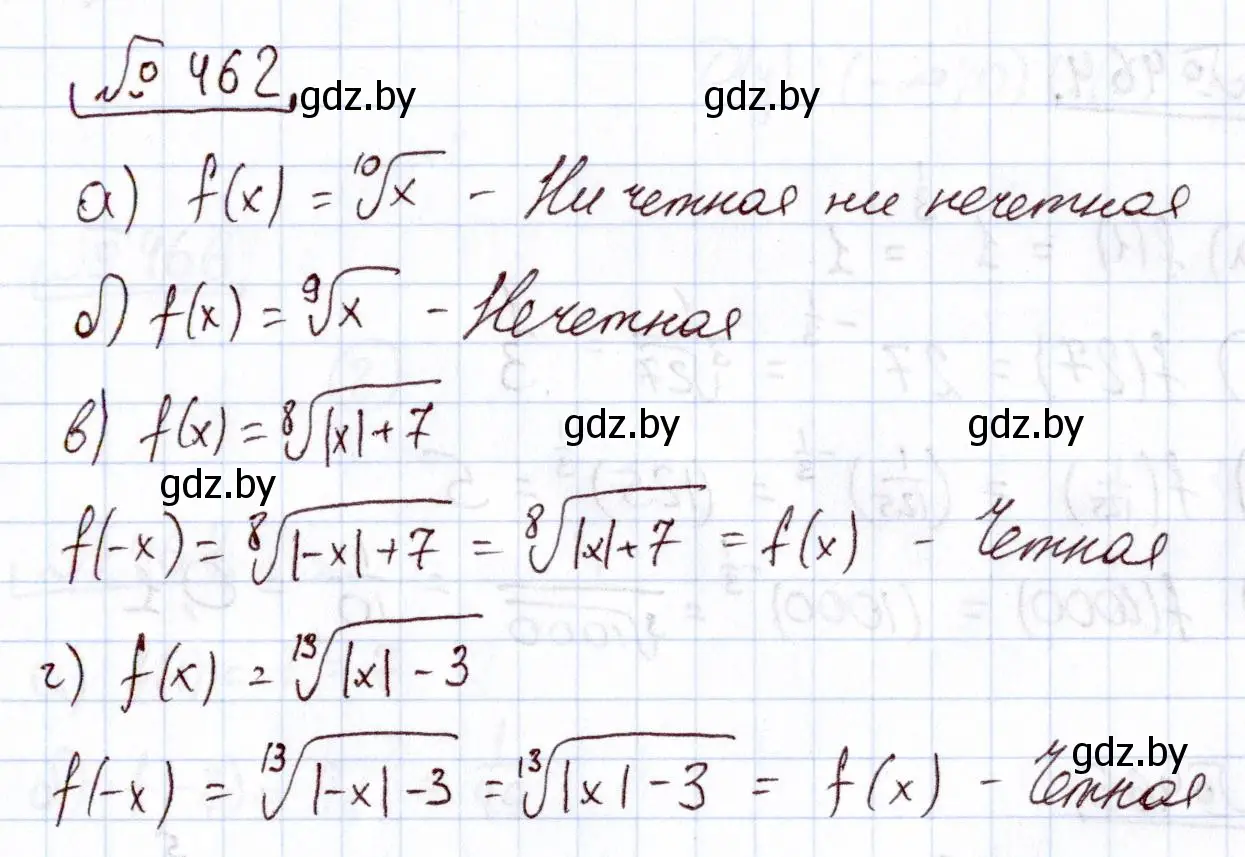 № 462
gdz.by gdz.by
а) f(x) = ¹⁰√x - Ни четная ни нечетная
б) f(x) = ⁹√x - Нечетная
в) f(x) = ⁸√|x| + 7
gdz.by gdz.by
gdz.by
f(-x) = ⁸√|-x| + 7 = ⁸√|x| + 7 = f(x) - Четная
г) f(x) = ¹³√|x| - 3
gdz.by
f(-x) = ¹³√|-x| - 3 = ¹³√|x| - 3 = f(x) - Четная